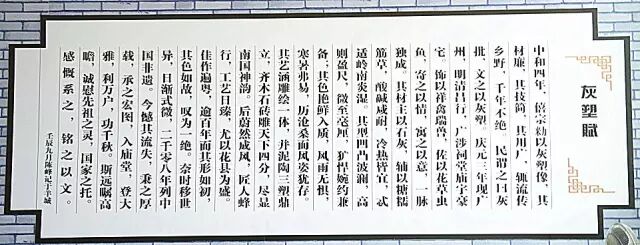 灰塑賦
中和四年，僖宗勅以灰塑像，其
材廉，其技简，其用广，辄流传
乡野，千年不绝，民谓之曰灰
批，文之以灰塑。庆元三年现广
州，明清昌行，广涉祠堂庙宇豪
宅。饰以祥禽瑞兽，佐以花草虫
鱼，寄之以情，寓之以意，一脉
独成。其材主以石灰，辅以糖糯
筋草，酸碱咸耐，冷热皆宜，忒
适岭南炎湿。其型凹凸波澜，高
则盈尺，微至毫厘，犷悍婉约兼
备；其色艳鲜入质，风雨无惧，
寒暑弗易，历沧桑而风姿犹存。
其艺涵雕绘一体，并泥陶三塑鼎
立，齐木石砖雕天下四分，尽显
南国神韵。后蔚然成风，匠人蜂
行，工艺日臻，尤以花县为盛。
佳作遍粤，逾百年而其形如初
其色如故，叹为一绝。奈时移世
异，日渐式微，二千零八年列中
国非遗。今憾其流失，秉之厚
载，承之宏图，入庙堂，登大
雅，利万户，功千秋。斯远瞩高
瞻，诚慰先祖之灵，国家之托。
感慨系之，铭之以文。
壬辰九月陈峰记于羊城